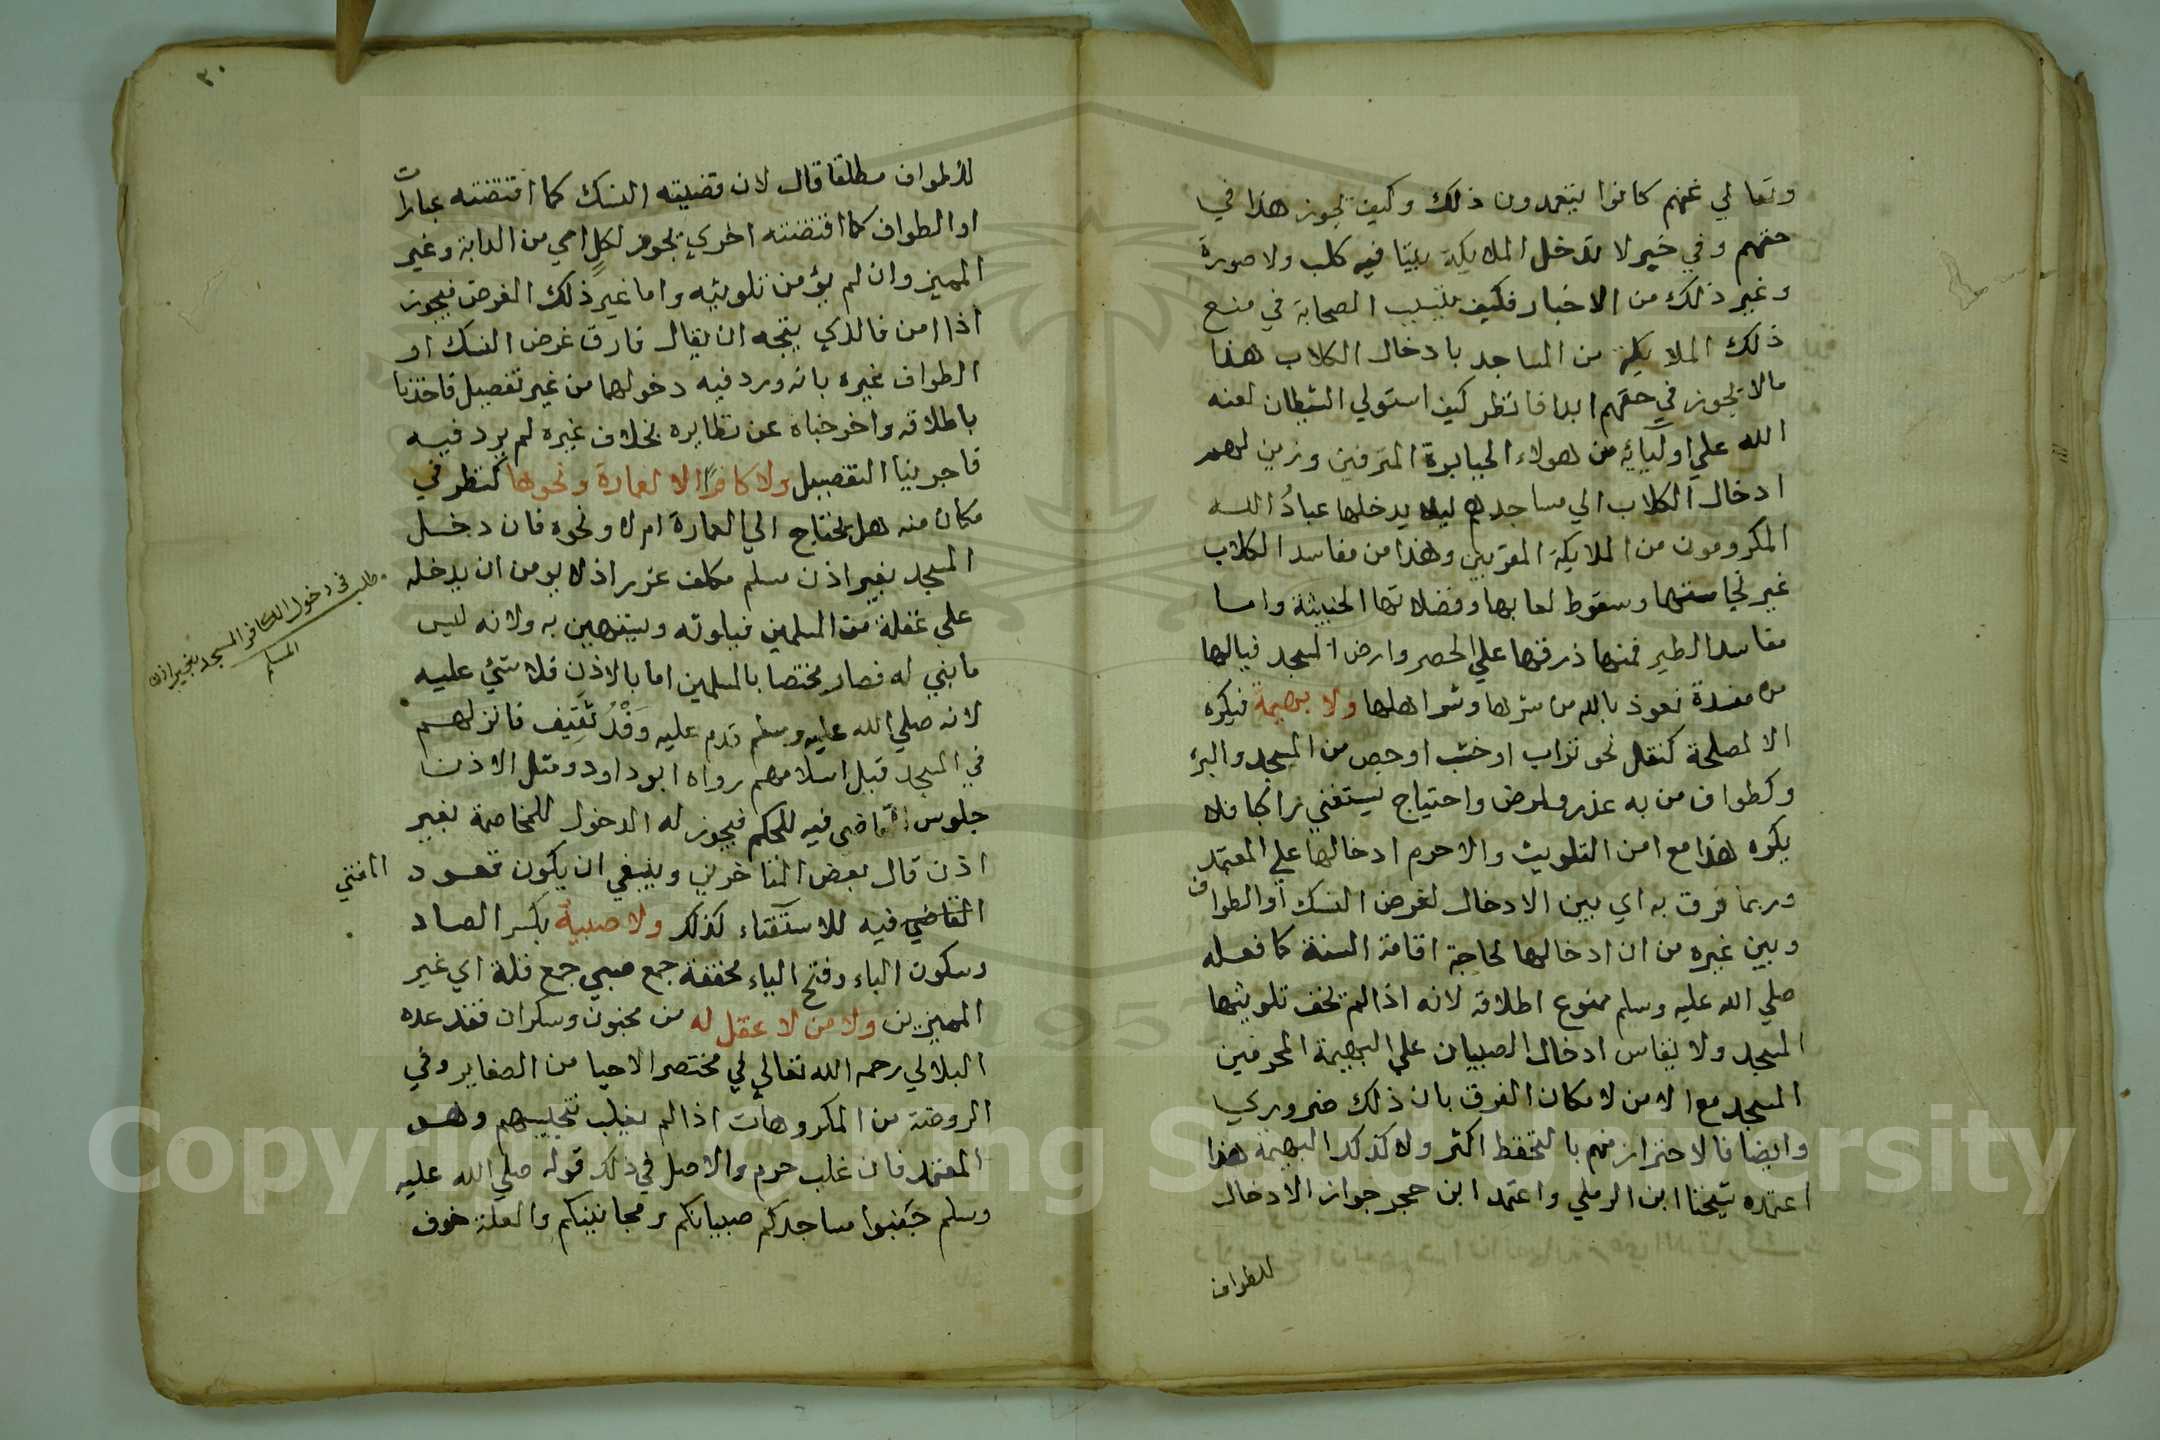 وتعالي عنهم كانوا يتعمدون ذلك وكيف يجوز هذا في
حقهم وفي خبر لا تدخل الملايكة بيتا فيه كلب ولا صورة
وغير ذلك من الاخبار فكيف يتسبب الصحابة في منع
ذلك الملايكة من المساجد بادخال الكلاب هذا
مالا يجوز في حقهم ابدا فانظر كيف استولي الشيطان لعنه
الله علي اوليائه من هولاء الجبابرة المترفين وزين لهم
ادخال الكلاب الي مساجدهم ليلا يدخلها عبادُ الله
المكرومون من الملايكة المقربين وهذا من مفاسد الكلاب
غير نجاستها وسقوط لعابها وفضلاتها الخبيثة واما
مفاسد الطير فمنها ذرقها علي الحصر وارض المسجد فيالها
من مفسدة نعوذ بالله من شرها وشر اهلها ولا بهيمة فيكره
الا لمصلحة كنقل نحو تراب او خشب او جص من المسجد واليه
وكطواف من به عذر ولمرض واحتياج ليستفتي راكبا فلا
يكره هذا مع امن التلويث والا حرم ادخالها علي المعتمد
وربما فرق به اي بين الادخال لغرض النسك او الطواف
وبين غيره من ان ادخالها لحاجة اقامة السنة كما فعله
صلي الله عليه وسلم ممنوع اطلاقه لانه اذا لم تخف تلويثها
المسجد ولا يقاس ادخال الصبيان علي البهيمة المحرمين
المسجد مع الامن لامكان الفرق بان ذلك ضروري
وايضا فالاحتراز منهم بالتحفظ اكثر ولا كذلك البهيمة هذا
اعتمده شيخنا ابن الرملي واعتمد ابن حجر جواز الادخال
للطواف
٣٠
للطواف مطلقا قال لان قضيته النسك كما اقتضته عبارات
او الطواف كما اقتضته اخري يجوز لكل امي من الدابة وغير
المميز وان لم يؤمن تلويثه واما غير ذلك الغرض فيجوز
اذا امن فالذي يتجه ان يقال فارق غرض النسك او
الطواف غيره بانه ورد فيه دخولهما من غير تفصيل فاخذنا
باطلاقه واخرجناه عن نظايره بخلاف غيره لم يرد فيه
فاجرينا التفصيل ولا كافرًا الا لعمارة ونحوها كنظر في
مكان منه هل يحتاج الي العمارة ام لا ونحوه فان دخل
المسجد بغير اذن مسلم مكلف عزر اذ لا يومن ان يدخله
علي غفلة من المسلمين فيلوثه ويستهين به ولانه ليس
مابني له فصار مختصا بالمسلمين اما بالاذن فلا شئ عليه
لانه صلي الله عليه وسلم قدم عليه وَفْدُ ثَقِيف فانزلهم
في المسجد قبل اسلامهم رواه ابوداود ومثل الاذن
جلوس القاضي فيه للحكم فيجوز له الدخول للمخاصمة بغير
اذن قال بعض المتاخرين وينبغي ان يكون قعود المفتي
القاضي فيه للاستفتاء كذلك ولا صبية بكسر الصاد
وسكون الباء وفتح الياء مخففة جمع صبي جمع قلة اي غير
المميزين ولا من لا عقل له من مجنون وسكران فقد عده
البلالي رحمه الله تعالي في مختصر الاحيا من الصغاير وفي
الروضة من المكروهات اذا لم يغلب تنجيسهم وهو
المعتمد فان غلب حرم والاصل في ذلك قوله صلي الله عليه
وسلم جنبوا مساجدكم صبيانكم ومجانينكم والعلة خوف
مطلب في دخول الكافر المسجد بغير اذن
المسلم
Copyright © King Saud University
1957